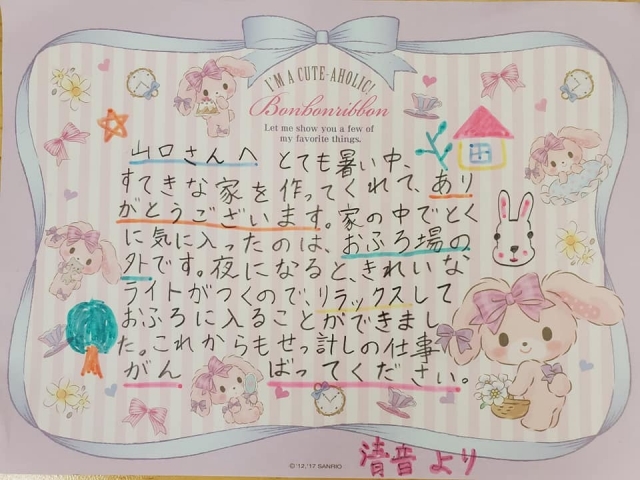 I'M A CUTE-AHOLIC!
Bonbonribbon
Let me show you a few of
my favorite things.
山口さんへ とても暑い中、
すてきな家を作ってくれて、あり
がとうございます。家の中でとく
に気に入ったのは、おふろ場の
外です。夜になると、きれいな
ライトがつくので、リラックスして
おふろに入ることができまし
た。これからもせっ計しの仕事
がんばってください。
清音より
© '12, '17 SANRIO